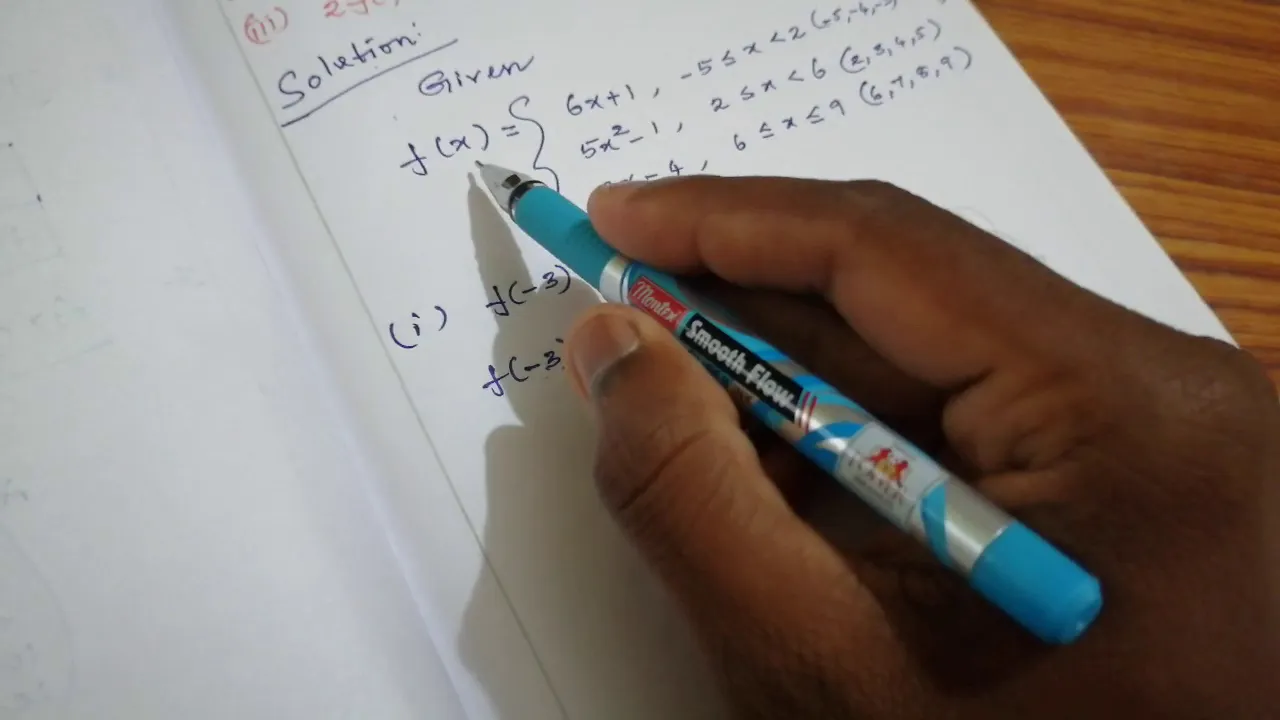 (iii) 2
Solution:
Given
f(x) = { 6x+1, -5 ≤ x < 2 (-5,-4,-
5x²-1, 2 ≤ x < 6 (2,3,4,5)
x-4, 6 ≤ x ≤ 9 (6,7,8,9)
(i) f(-3)
f(-3)
Montex
Smooth-Flow